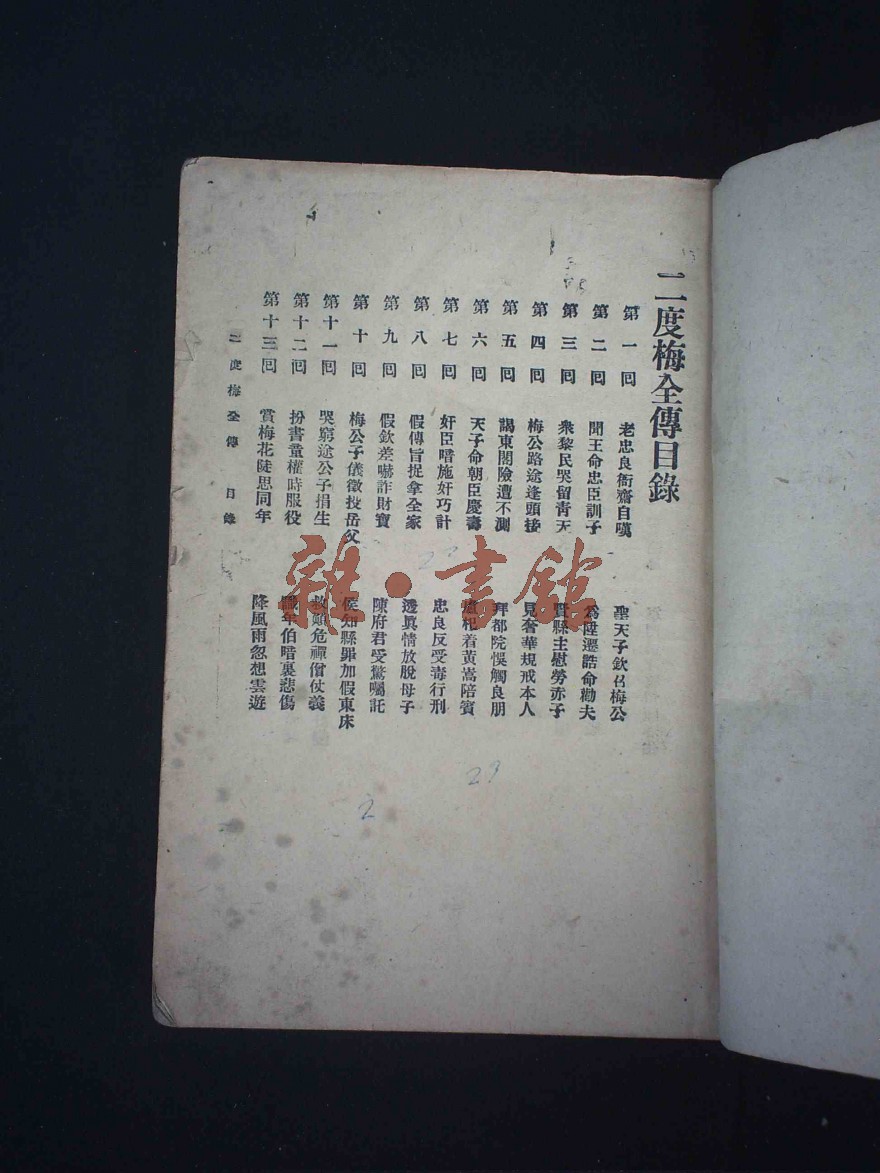 二度梅全傳目錄
第一回 老忠良衙齋自嘆 聖天子欽召梅公
第二回 聞王命忠臣訓子 爲陞遷誥命勸夫
第三回 衆黎民哭留青天 賢縣主慰勞赤子
第四回 梅公路途逢頭接 見奢華規戒本人
第五回 謁東閣險遭不測 拜都院悞觸良朋
第六回 天子命朝臣慶壽 盧杞着黃嵩陪賓
第七回 奸臣暗施奸巧計 忠良反受毒行刑
第八回 假傳旨捉拿全家 透真情放脫母子
第九回 假欽差嚇詐財寶 陳府君受驚囑託
第十回 梅公子儀徵投岳父 侯知縣罪加假東床
第十一回 哭窮途公子捐生 救難危禪僧仗義
第十二回 扮書童權時服役 年伯暗裏悲傷
第十三回 賞梅花陡思同年 降風雨忽想雲遊
二度梅全傳 目錄
雜·書館
23
29
2